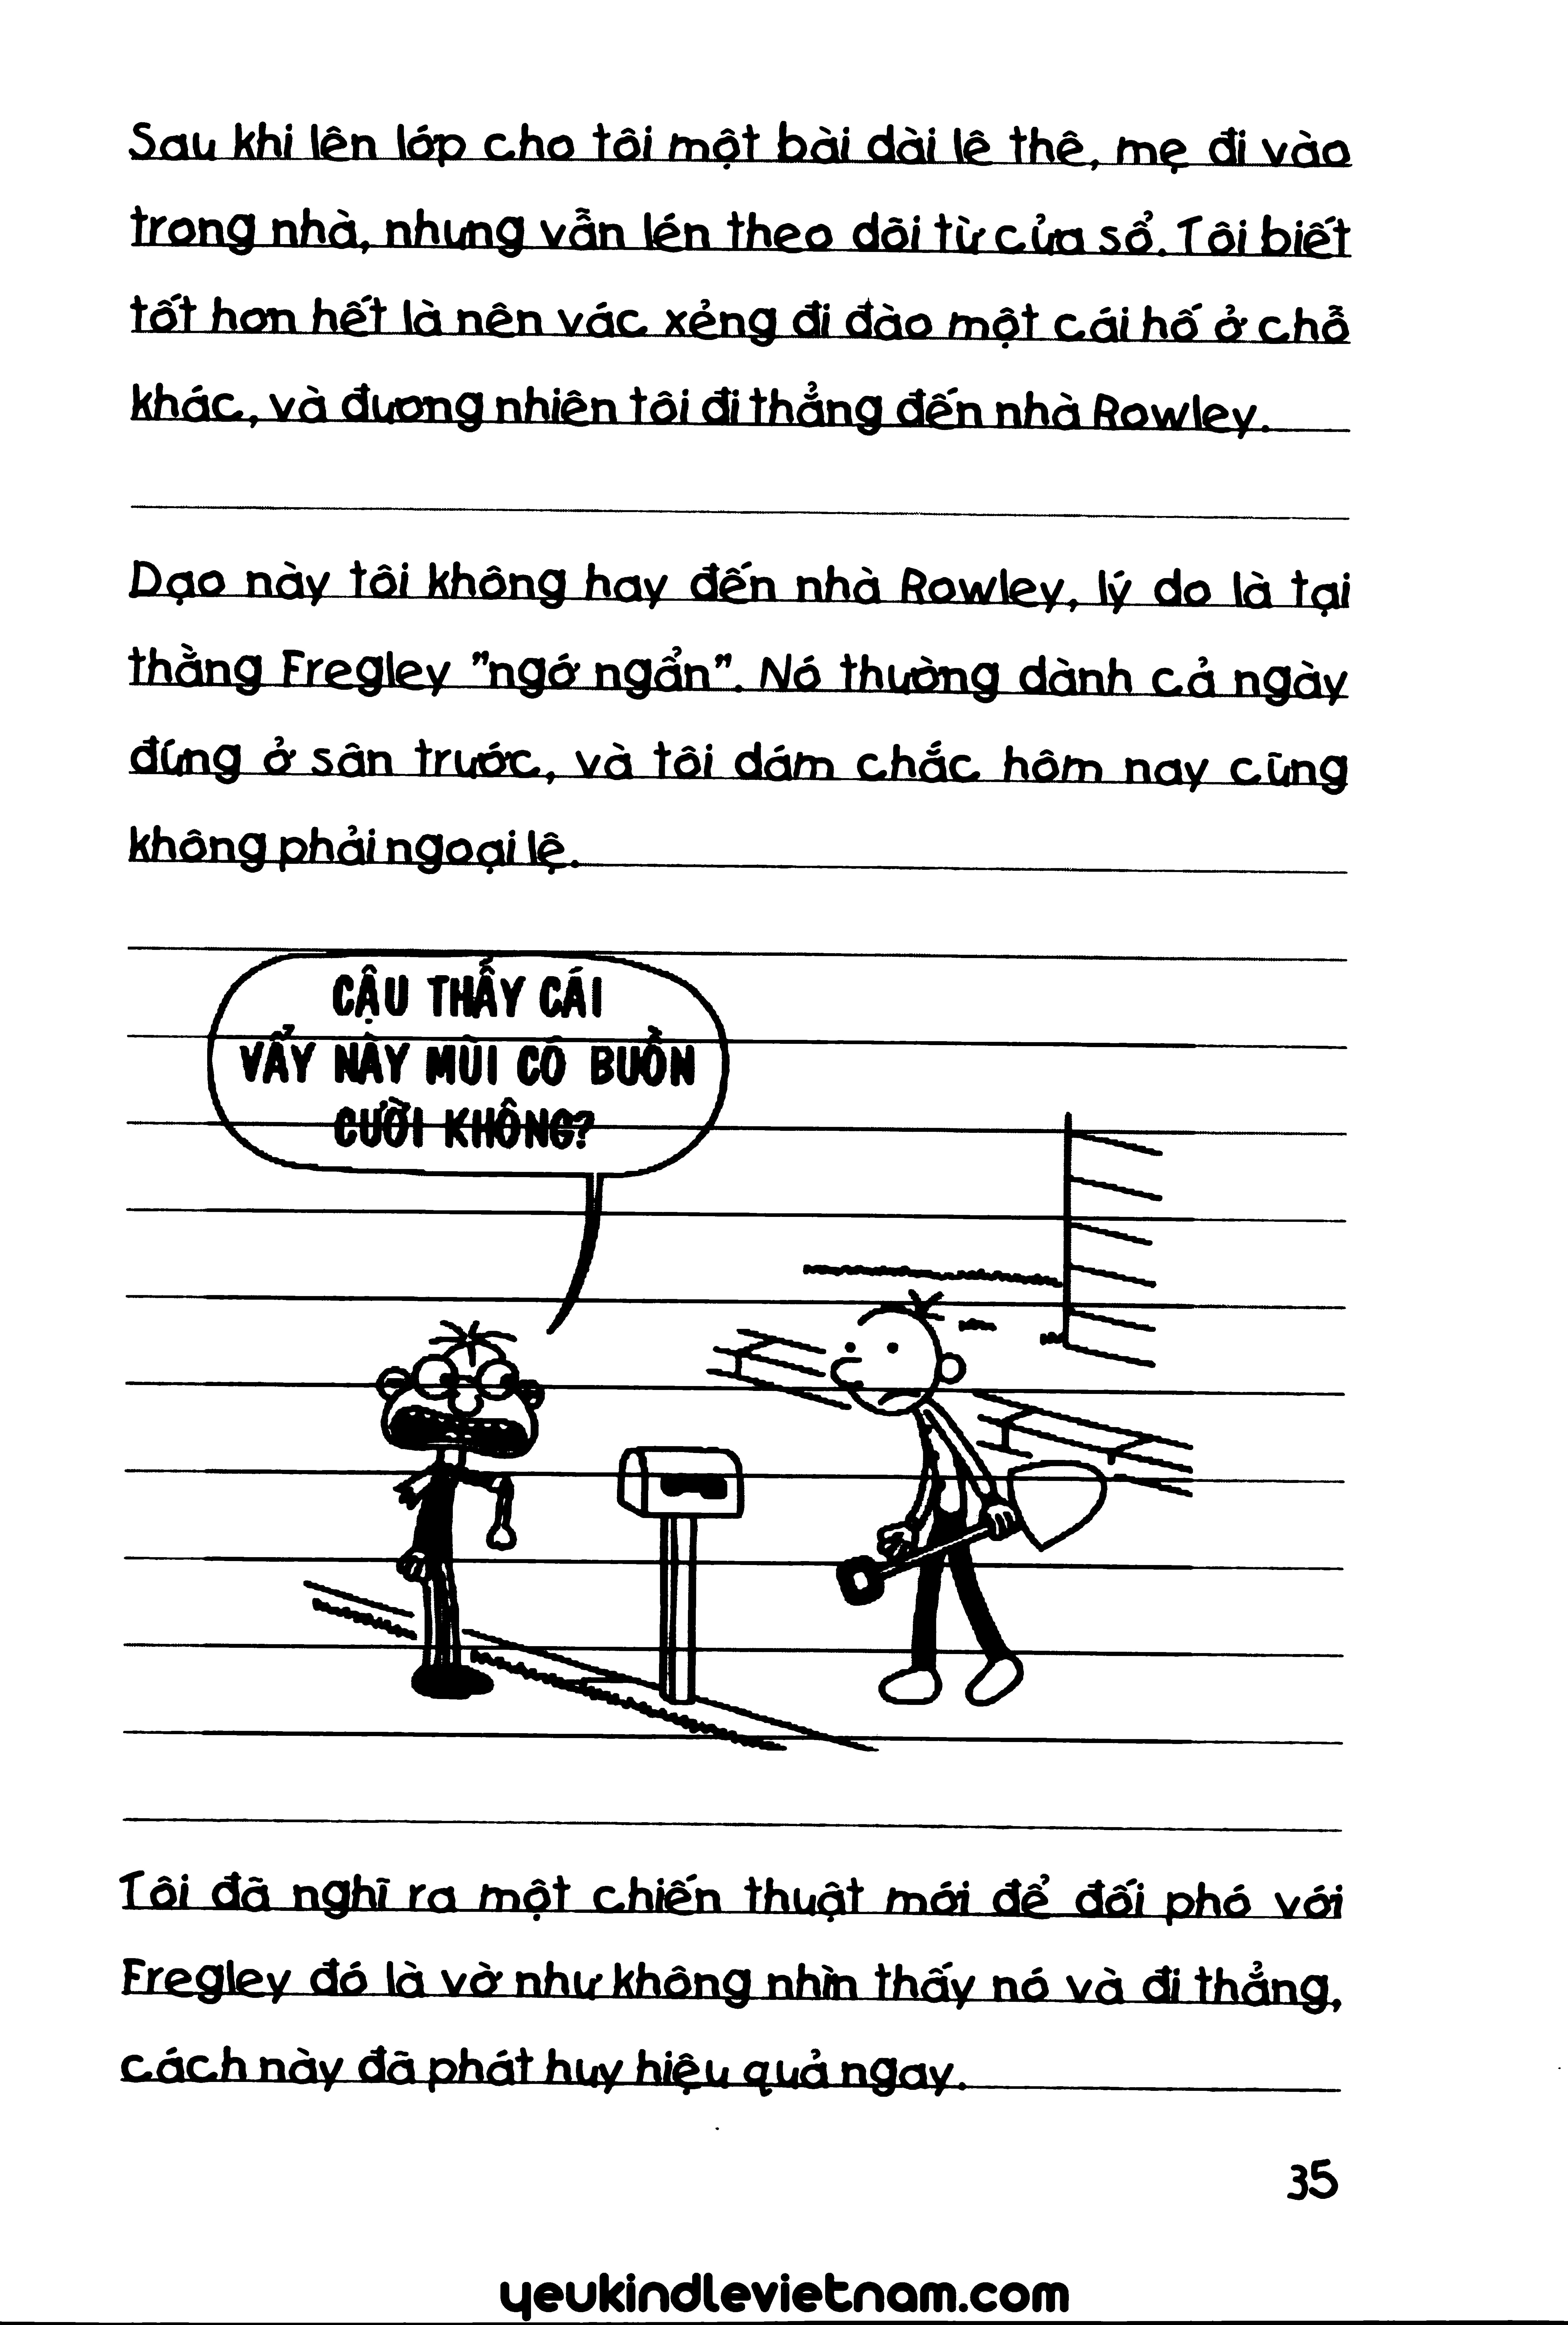 Sau khi lên lớp cho tôi một bài dài lê thê, mẹ đi vào
trong nhà, nhưng vẫn lén theo dõi từ cửa sổ. Tôi biết
tốt hơn hết là nên vác xẻng đi đào một cái hố ở chỗ
khác, và đương nhiên tôi đi thẳng đến nhà Rowley.
Dạo này tôi không hay đến nhà Rowley, lý do là tại
thằng Fregley "ngớ ngẩn". Nó thường dành cả ngày
đứng ở sân trước, và tôi dám chắc hôm nay cũng
không phải ngoại lệ.
CẬU THẤY CÁI
VẨY NÀY MÙI CÓ BUỒN
CƯỜI KHÔNG?
Tôi đã nghĩ ra một chiến thuật mới để đối phó với
Fregley đó là vờ như không nhìn thấy nó và đi thẳng,
cách này đã phát huy hiệu quả ngay.
35
yeukindlevietnam.com